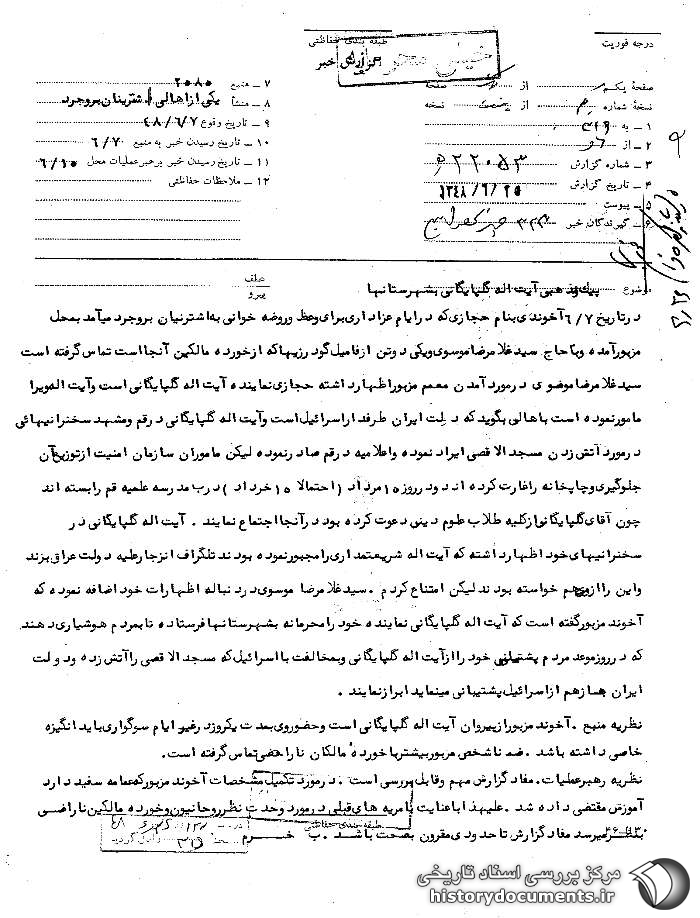 درجه فوریت
طبقه بندی حفاظتی
خیلی محرمانه
گزارش خبر
صفحهٔ یک از صفحه
نسخهٔ شماره از نسخه
۱ ـ به ۳۱۶
۲ ـ از
۳ ـ شماره گزارش ۲۲۰۵۳
۴ ـ تاریخ گزارش ۱۳۴۸/۶/۲۵
۵ ـ پیوست
۶ ـ گیرندگان خبر
۷ ـ منبع ۲۰۸۰
۸ ـ منشأ یکی از اهالی اشترینان بروجرد
۹ ـ تاریخ وقوع ۴۸/۶/۷
۱۰ ـ تاریخ رسیدن خبر به منبع ۶/۷
۱۱ ـ تاریخ رسیدن خبر برهبر عملیات محل ۶/۱۵
۱۲ ـ ملاحظات حفاظتی
عطف
پیرو
موضوع پیک مذهبی آیت اله گلپایگانی بشهرستانها
درتاریخ ۶/۷ آخوندی بنام حجازی که درایام عزاداری برای وعظ وروضه خوانی به اشترنیان بروجرد میآمد بمحل
مزبورآمده وباحاج سید غلامرضا موسوی ویکی دوتن ازفامیل گودرزیها که ازخورده مالکین آنجااست تماس گرفته است
سید غلامرضا موضوی درمورد آمدن معمم مزبوراظهارداشته حجازی نماینده آیت اله گلپایگانی است وآیت اله ویرا
مامورنموده است باهالی بگوید که دولت ایران طرفدار اسرائیل است وآیت اله گلپایگانی درقم ومشهد سخنرانیهائی
درمورد آتش زدن مسجد الاقصی ایراد نموده واعلامیه درقم صادرنموده لیکن ماموران سازمان امنیت ازتوزیع آن
جلوگیری وچاپخانه راغارت کرده اند ودرروز ۱۵ مرداد (احتمالا ۱۵ خرداد) درب مدرسه علمیه قم رابسته اند
چون آقای گلپایگانی ازکلیه طلاب علوم دینی دعوت کرده بود درآنجا اجتماع نمایند . آیت اله گلپایگانی در
سخنرانیهای خود اظهارداشته که آیت اله شریعتمداری رامجبورنموده بودند تلگراف انزجارعلیه دولت عراق بزند
واین را ازمن هم خواسته بودند لیکن امتناع کردم . سید غلامرضا موسوی دردنباله اظهارات خود اضافه نموده که
آخوند مزبورگفته است که آیت اله گلپایگانی نماینده خود رامحرمانه بشهرستانها فرستاده تابمردم هوشیاری دهند
که درروزموعد مردم پشتیبانی خود راازآیت اله گلپایگانی وبمخالفت بااسرائیل که مسجد الاقصی راآتش زده ودولت
ایران همازهم ازاسرائیل پشتیبانی مینماید ابرازنمایند .
نظریه منبع . آخوند مزبورازپیروان آیت اله گلپایگانی است وحضوروی بمدت یکروزدرغیرایام سوگواری باید انگیزه
خاصی داشته باشد . ضمنا شخص مزبوربیشتربا خوردهٔ مالکان ناراضی تماس گرفته است.
نظریه رهبرعملیات. مفاد گزارش مهم وقابل بررسی است . درمورد تکمیل مشخصات آخوند مزبورکه عمامه سفید دارد
آموزش مقتضی داده شد . علیهذا باعنایت بامریه های قبلی درمورد وحدت نظر روحانیون وخورده مالکین ناراضی
بنظرمیرسد مفاد گزارش تاحدودی مقرون بصحت باشد . ب خرم
طبقه بندی حفاظتی
۳۱۶
مرکز بررسی اسناد تاریخی
historydocuments.ir